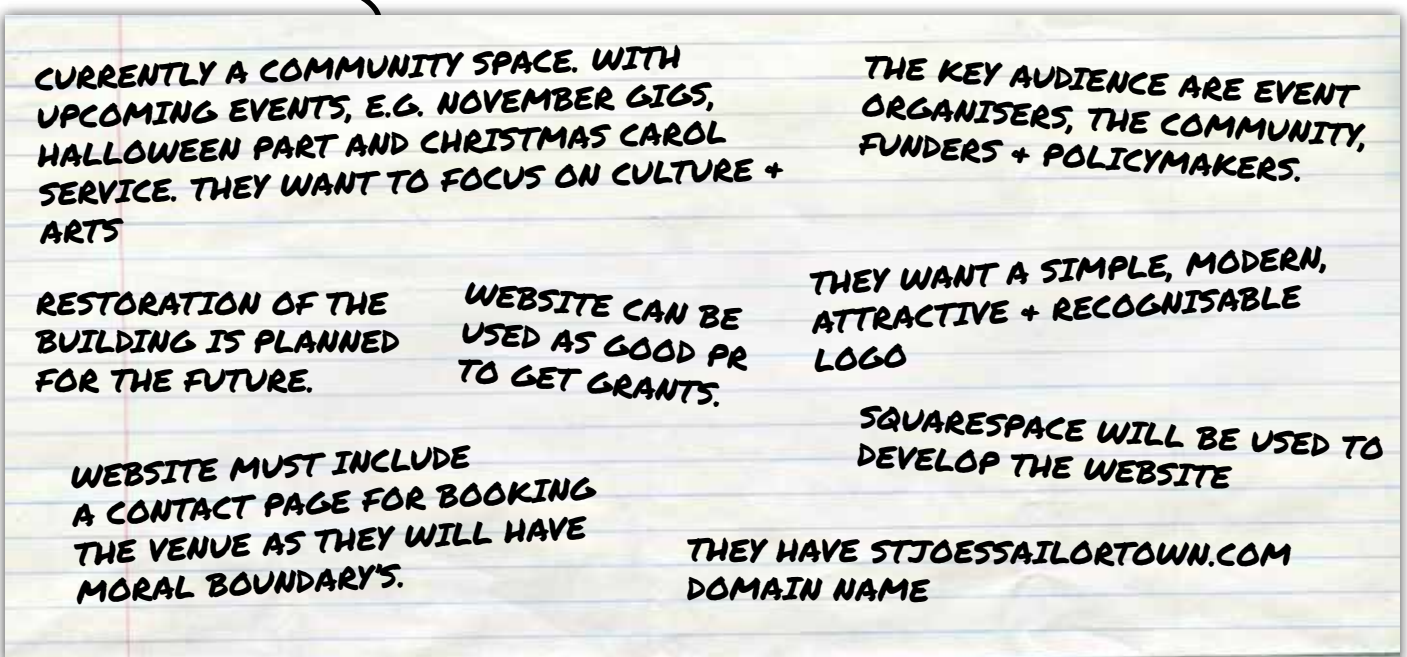 CURRENTLY A COMMUNITY SPACE. WITH
UPCOMING EVENTS, E.G. NOVEMBER GIGS,
HALLOWEEN PART AND CHRISTMAS CAROL
SERVICE. THEY WANT TO FOCUS ON CULTURE +
ARTS
THE KEY AUDIENCE ARE EVENT
ORGANISERS, THE COMMUNITY,
FUNDERS + POLICYMAKERS.
RESTORATION OF THE
BUILDING IS PLANNED
FOR THE FUTURE.
WEBSITE CAN BE
USED AS GOOD PR
TO GET GRANTS.
THEY WANT A SIMPLE, MODERN,
ATTRACTIVE + RECOGNISABLE
LOGO
SQUARESPACE WILL BE USED TO
DEVELOP THE WEBSITE
WEBSITE MUST INCLUDE
A CONTACT PAGE FOR BOOKING
THE VENUE AS THEY WILL HAVE
MORAL BOUNDARY'S.
THEY HAVE STJOESSAILORTOWN.COM
DOMAIN NAME